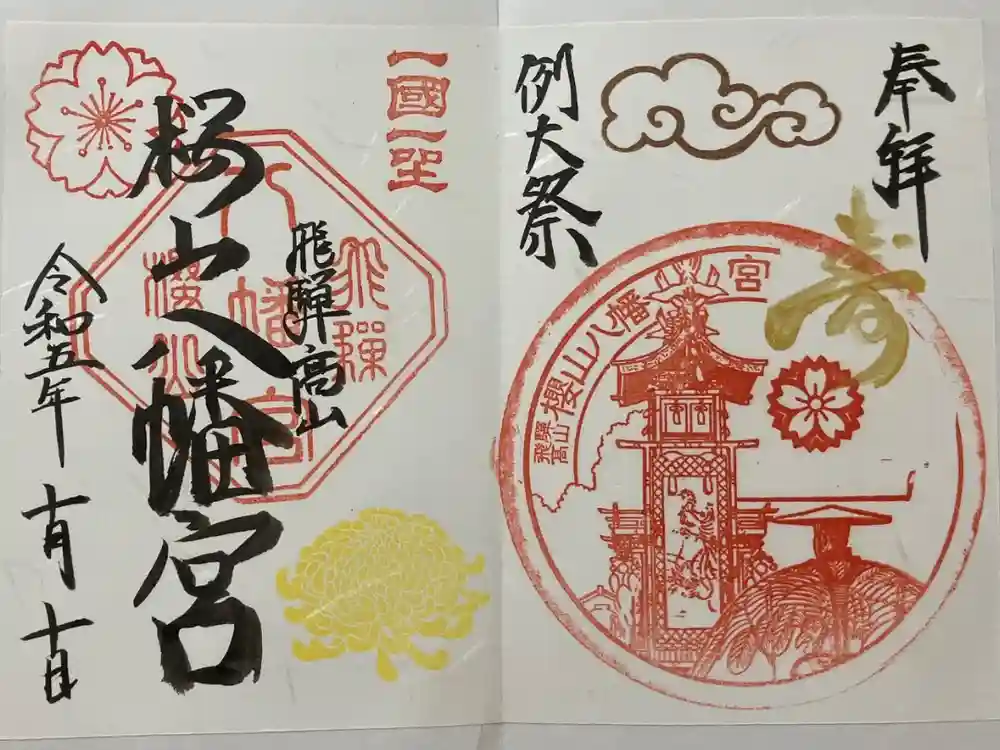 奉拝
寿
例大祭
飛騨高山
櫻山八幡宮
一國一社
飛騨高山
桜山八幡宮
飛騨
八幡宮
櫻山
令和五年
十月十日